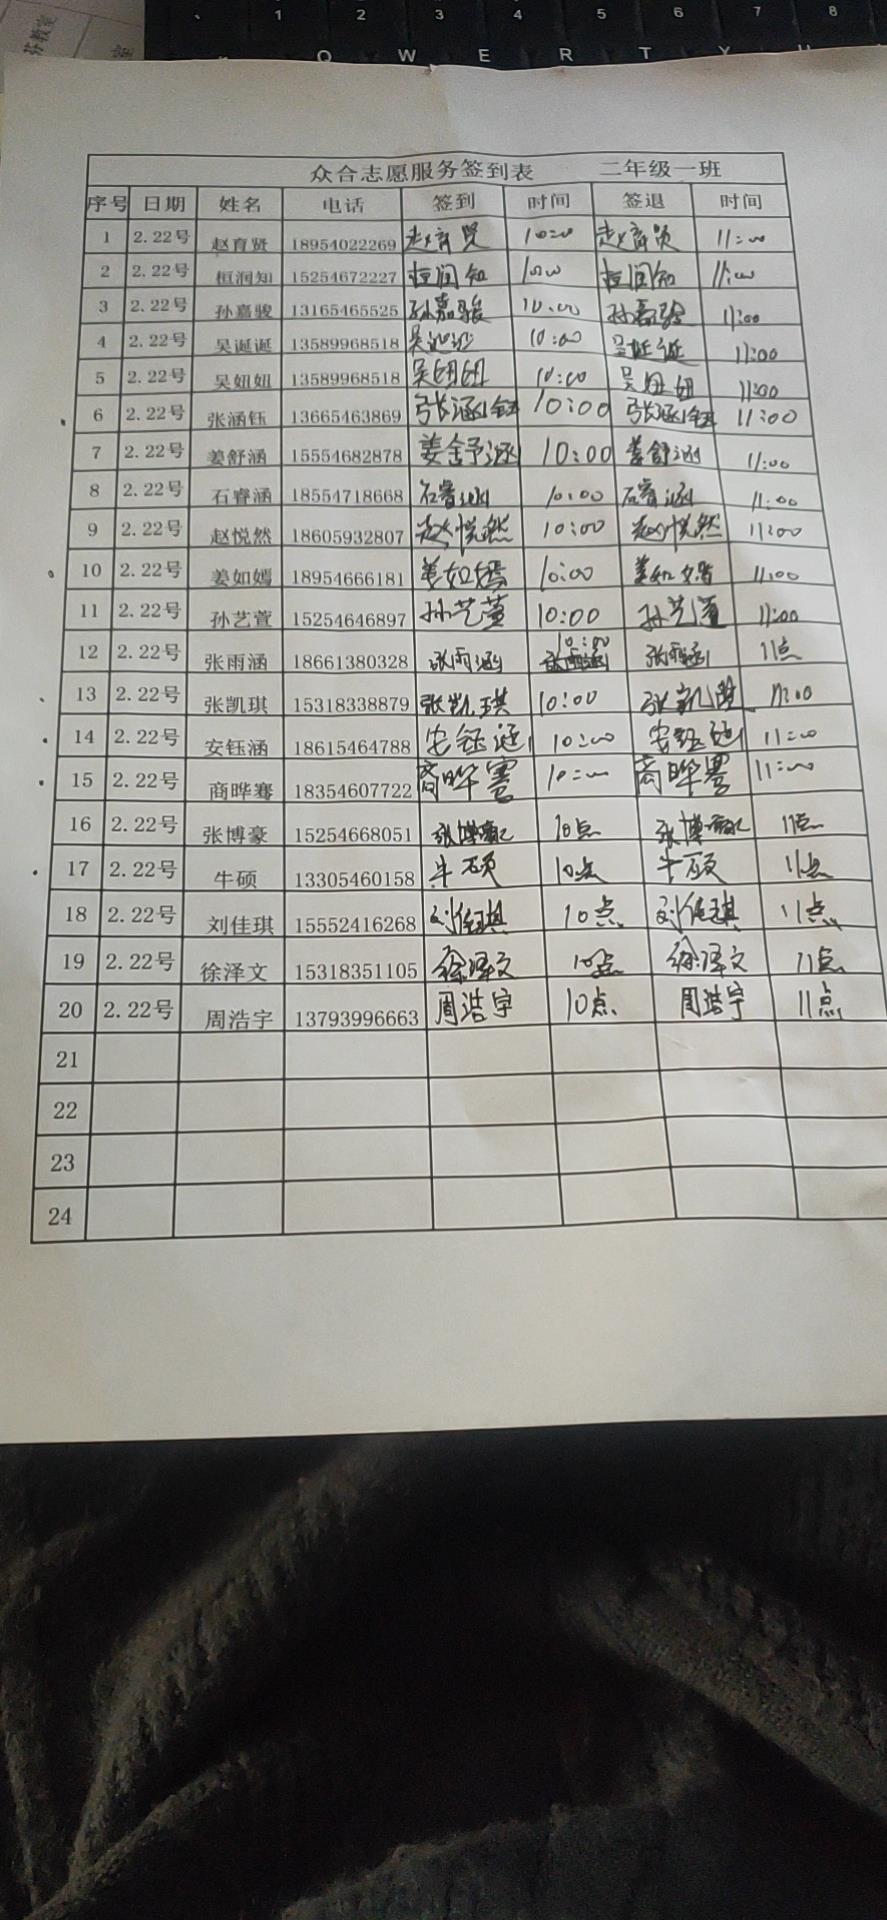 、 1 2 3 4 5 6 7 8
Q W E R T Y U
众合志愿服务签到表 二年级一班
序号 日期 姓名 电话 签到 时间 签退 时间
1 2.22号 赵育贤 18954022269 赵育贤 10:00 赵育贤 11:00
2 2.22号 桓润知 15254672227 桓润知 10:00 桓润知 11:00
3 2.22号 孙嘉骏 13165465525 孙嘉骏 10:00 孙嘉骏 11:00
4 2.22号 吴诞诞 13589968518 吴诞诞 10:00 吴诞诞 11:00
5 2.22号 吴妞妞 13589968518 吴妞妞 10:00 吴妞妞 11:00
6 2.22号 张涵钰 13665463869 张涵钰 10:00 张涵钰 11:00
7 2.22号 姜舒涵 15554682878 姜舒涵 10:00 姜舒涵 11:00
8 2.22号 石睿涵 18554718668 石睿涵 10:00 石睿涵 11:00
9 2.22号 赵悦然 18605932807 赵悦然 10:00 赵悦然 11:00
10 2.22号 姜如嫣 18954666181 姜如嫣 10:00 姜如嫣 11:00
11 2.22号 孙艺萱 15254646897 孙艺萱 10:00 孙艺萱 11:00
12 2.22号 张雨涵 18661380328 张雨涵 10:00 张雨涵 11点
13 2.22号 张凯琪 15318338879 张凯琪 10:00 张凯琪 11:00
14 2.22号 安钰涵 18615464788 安钰涵 10:00 安钰涵 11:00
15 2.22号 商晔骞 18354607722 商晔骞 10:00 商晔骞 11:00
16 2.22号 张博豪 15254668051 张博豪 10点 张博豪 11点
17 2.22号 牛硕 13305460158 牛硕 10点 牛硕 11点
18 2.22号 刘佳琪 15552416268 刘佳琪 10点 刘佳琪 11点
19 2.22号 徐泽文 15318351105 徐泽文 10点 徐泽文 11点
20 2.22号 周浩宇 13793996663 周浩宇 10点 周浩宇 11点
21
22
23
24